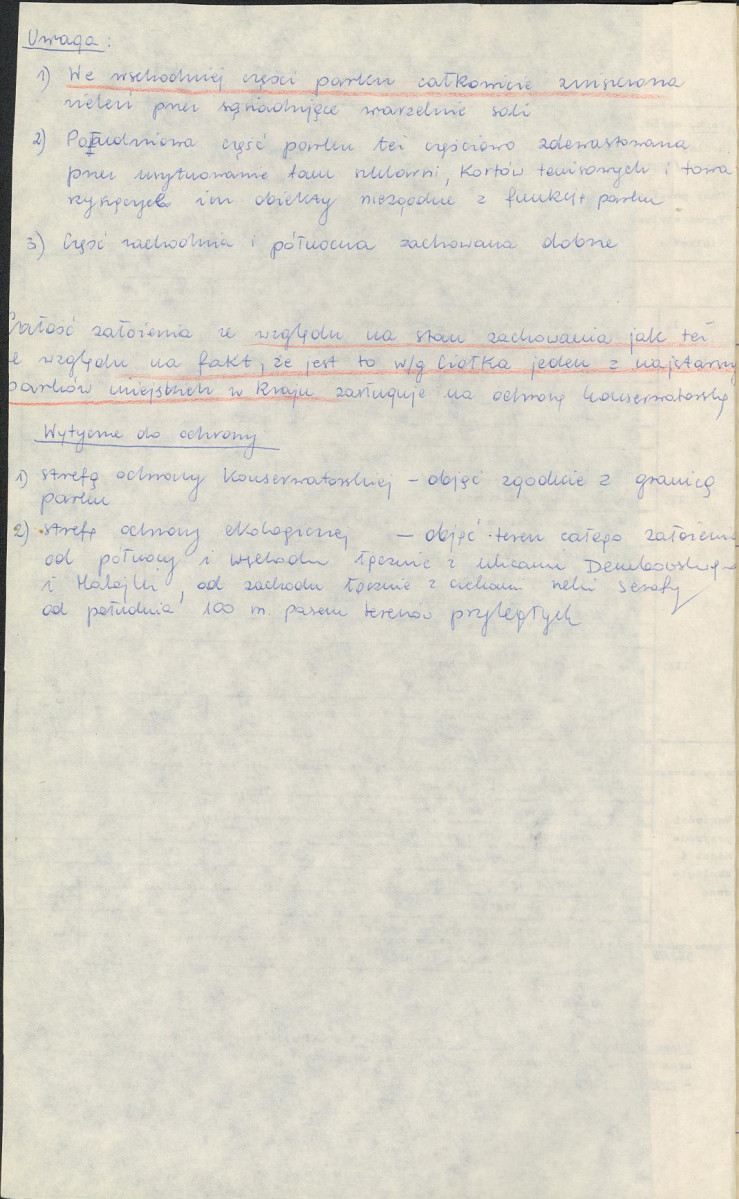 Uwaga:
1) We wschodniej części parku całkowicie zniszczona
zieleń przez sąsiadujące warzelnie soli
2) Południowa część parku też częściowo zdewastowana
przez usytuowanie tam szklarni, kortów tenisowych i towa
rzyszących im obiekty niezgodne z funkcją parku
3) Część zachodnia i północna zachowana dobrze
Całość założenia ze względu na stan zachowania jak też
ze względu na fakt, że jest to w/g Ciołka jeden z najstarszy
parków miejskich w kraju zasługuje na ochronę konserwatorską
Wytyczne do ochrony
1) strefą ochrony konserwatorskiej – objąć zgodnie z granicą
parku
2) strefą ochrony ekologicznej – objąć teren całego założenia
od północy i wschodu łącznie z ulicami Dembowskiego
i Matejki, od zachodu łącznie z ciekiem rzeki Serafy
od południa 100 m. pasem terenów przyległych